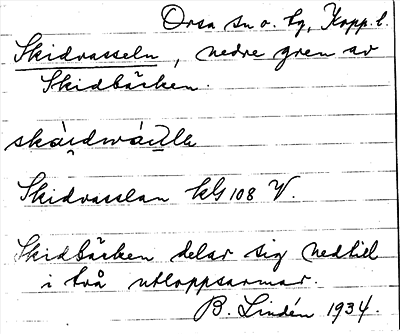 Orsa sn o. tg, Kopp. l.
Skidvasseln, nedre gren av
Skidbäcken.
Skidvasslan kbl 108 V.
Skidbäcken delar sig nedtill
i två utloppsarmar.
B. Lindén 1934.